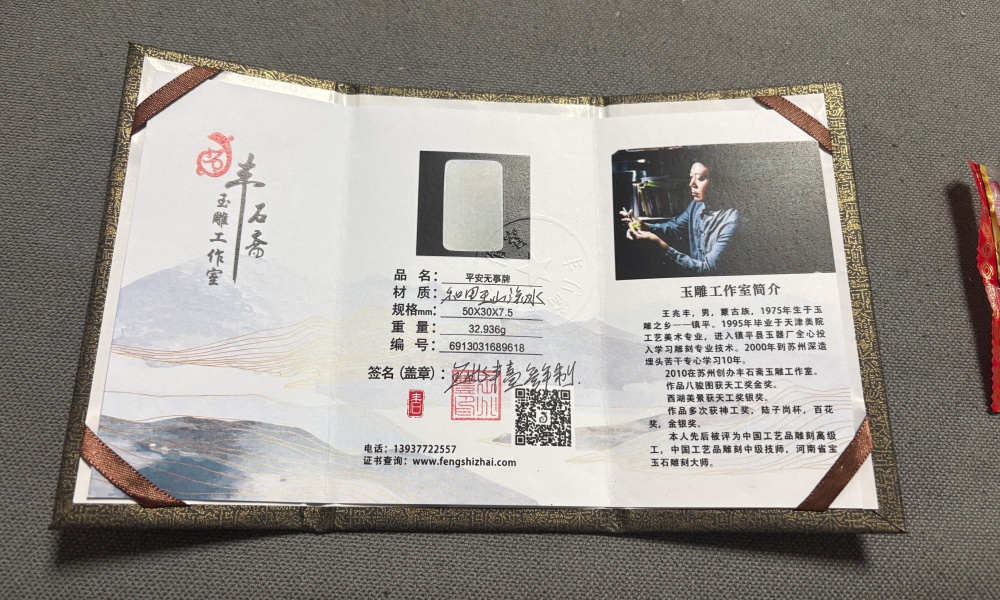 丰石斋
玉雕工作室
品 名： 平安无事牌
材 质： 和田玉山流水
规格mm： 50X30X7.5
重 量： 32.936g
编 号： 6913031689618
签名(盖章)：
电话：13937722557
证书查询：www.fengshizhai.com
玉雕工作室简介
王兆丰，男，蒙古族，1975年生于玉
雕之乡——镇平。1995年毕业于天津美院
工艺美术专业，进入镇平县玉器厂全心投
入学习雕刻专业技术。2000年到苏州深造
埋头苦干专心学习10年。
2010在苏州创办丰石斋玉雕工作室。
作品八骏图获天工奖金奖。
西湖美景获天工奖银奖。
作品多次获神工奖，陆子尚杯，百花
奖，金银奖。
本人先后被评为中国工艺品雕刻高级
工，中国工艺品雕刻中级技师，河南省宝
玉石雕刻大师。